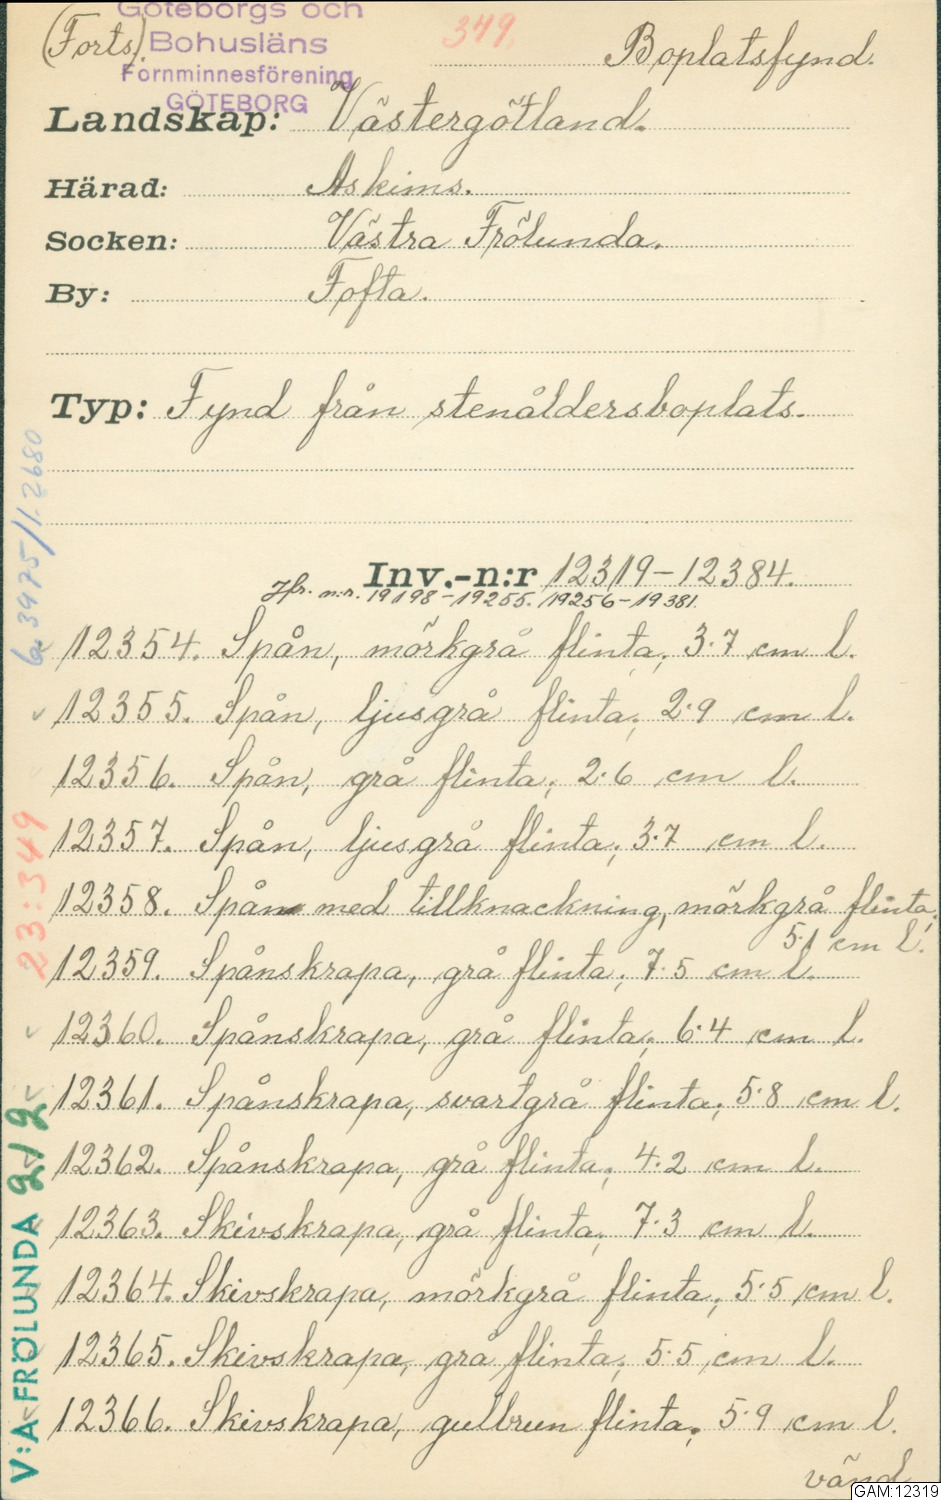 Göteborgs och
(Forts). Bohusläns 349. Boplatsfynd.
Fornminnesförening
GÖTEBORG
Landskap: Västergötland.
Härad: Askims.
Socken: Västra Frölunda.
By: Tofta.
Typ: Fynd från stenåldersboplats.
Inv.-n:r 12319-12384.
Jfr. n:r. 19198-19255. 19256-19381.
12354. Spån, mörkgrå flinta; 3.7 cm l.
12355. Spån, ljusgrå flinta; 2.9 cm l.
12356. Spån, grå flinta; 2.6 cm l.
12357. Spån, ljusgrå flinta; 3.7 cm l.
12358. Spån med tillknackning, mörkgrå flinta;
5.1 cm l.
12359. Spånskrapa, grå flinta; 7.5 cm l.
12360. Spånskrapa, grå flinta; 6.4 cm l.
12361. Spånskrapa, svartgrå flinta; 5.8 cm l.
12362. Spånskrapa, grå flinta; 4.2 cm l.
12363. Skivskrapa, grå flinta; 7.3 cm l.
12364. Skivskrapa, mörkgrå flinta; 5.5 cm l.
12365. Skivskrapa, grå flinta; 5.5 cm l.
12366. Skivskrapa, gulbrun flinta; 5.9 cm l.
vänd
V:A FRÖLUNDA 212
23:349
3975/1-2680
GAM:12319